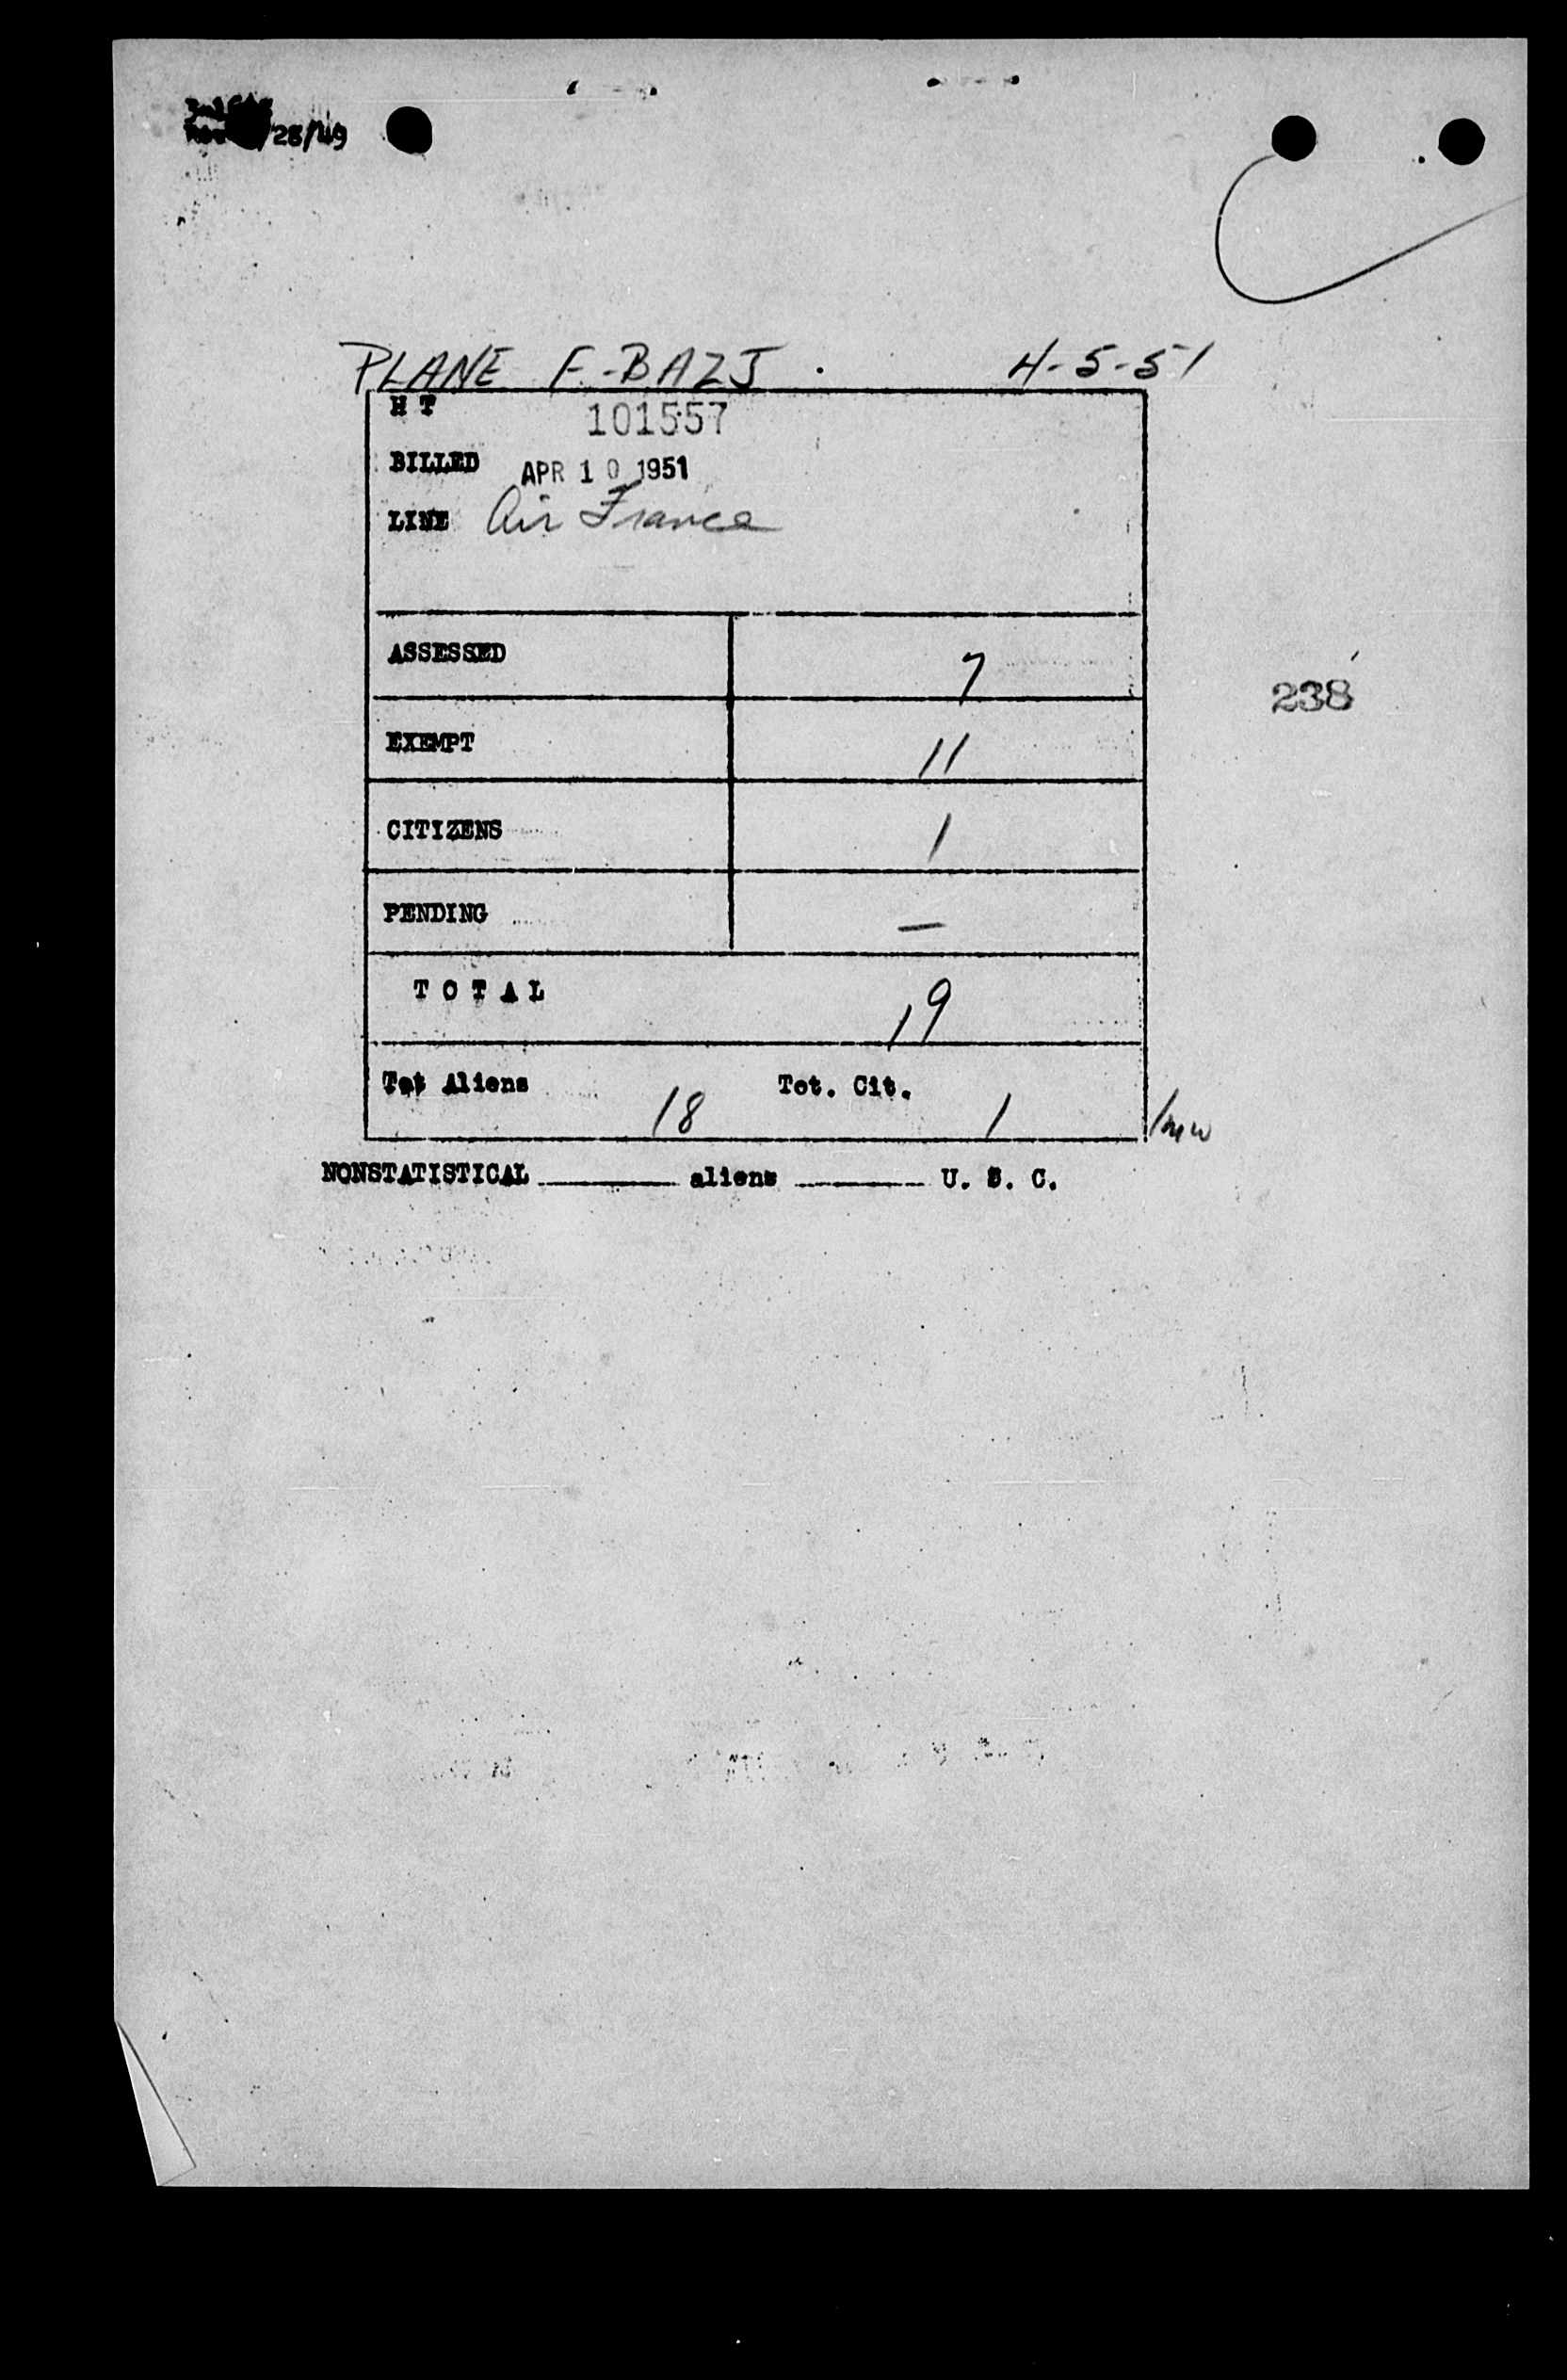 28/49
PLANE F-BAZJ . 4-5-51
H T 101557
BILLED APR 10 1951
LINE Air France
ASSESSED 7
238
EXEMPT 11
CITIZENS 1
PENDING —
TOTAL 19
Tot Aliens 18 Tot. Cit. 1
NONSTATISTICAL ________ aliens ________ U. S. C.